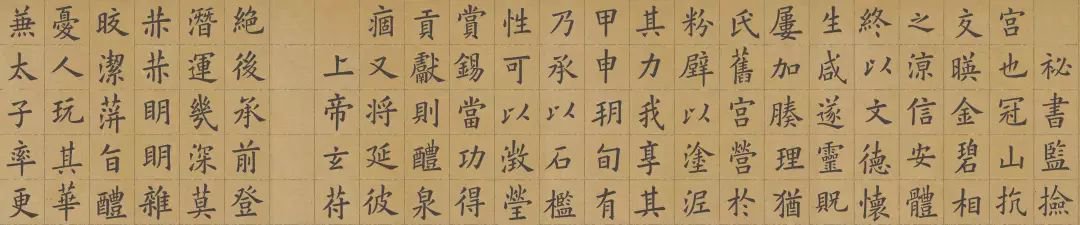 祕書監撿
宫也冠山抗
交暎金碧相
之涼信安體
終以文德懷
生咸遂靈貺
屢加腠理猶
氏舊宫營於
粉壁以塗泥
其力我享其
甲申朔旬有
乃承以石檻
性可以澂瑩
賞錫當功得
貢獻則醴泉
痼又将延彼
上帝玄苻
絶後承前登
潛運幾深莫
明明雜
晈潔蓱旨醴
憂人玩其華
兼太子率更